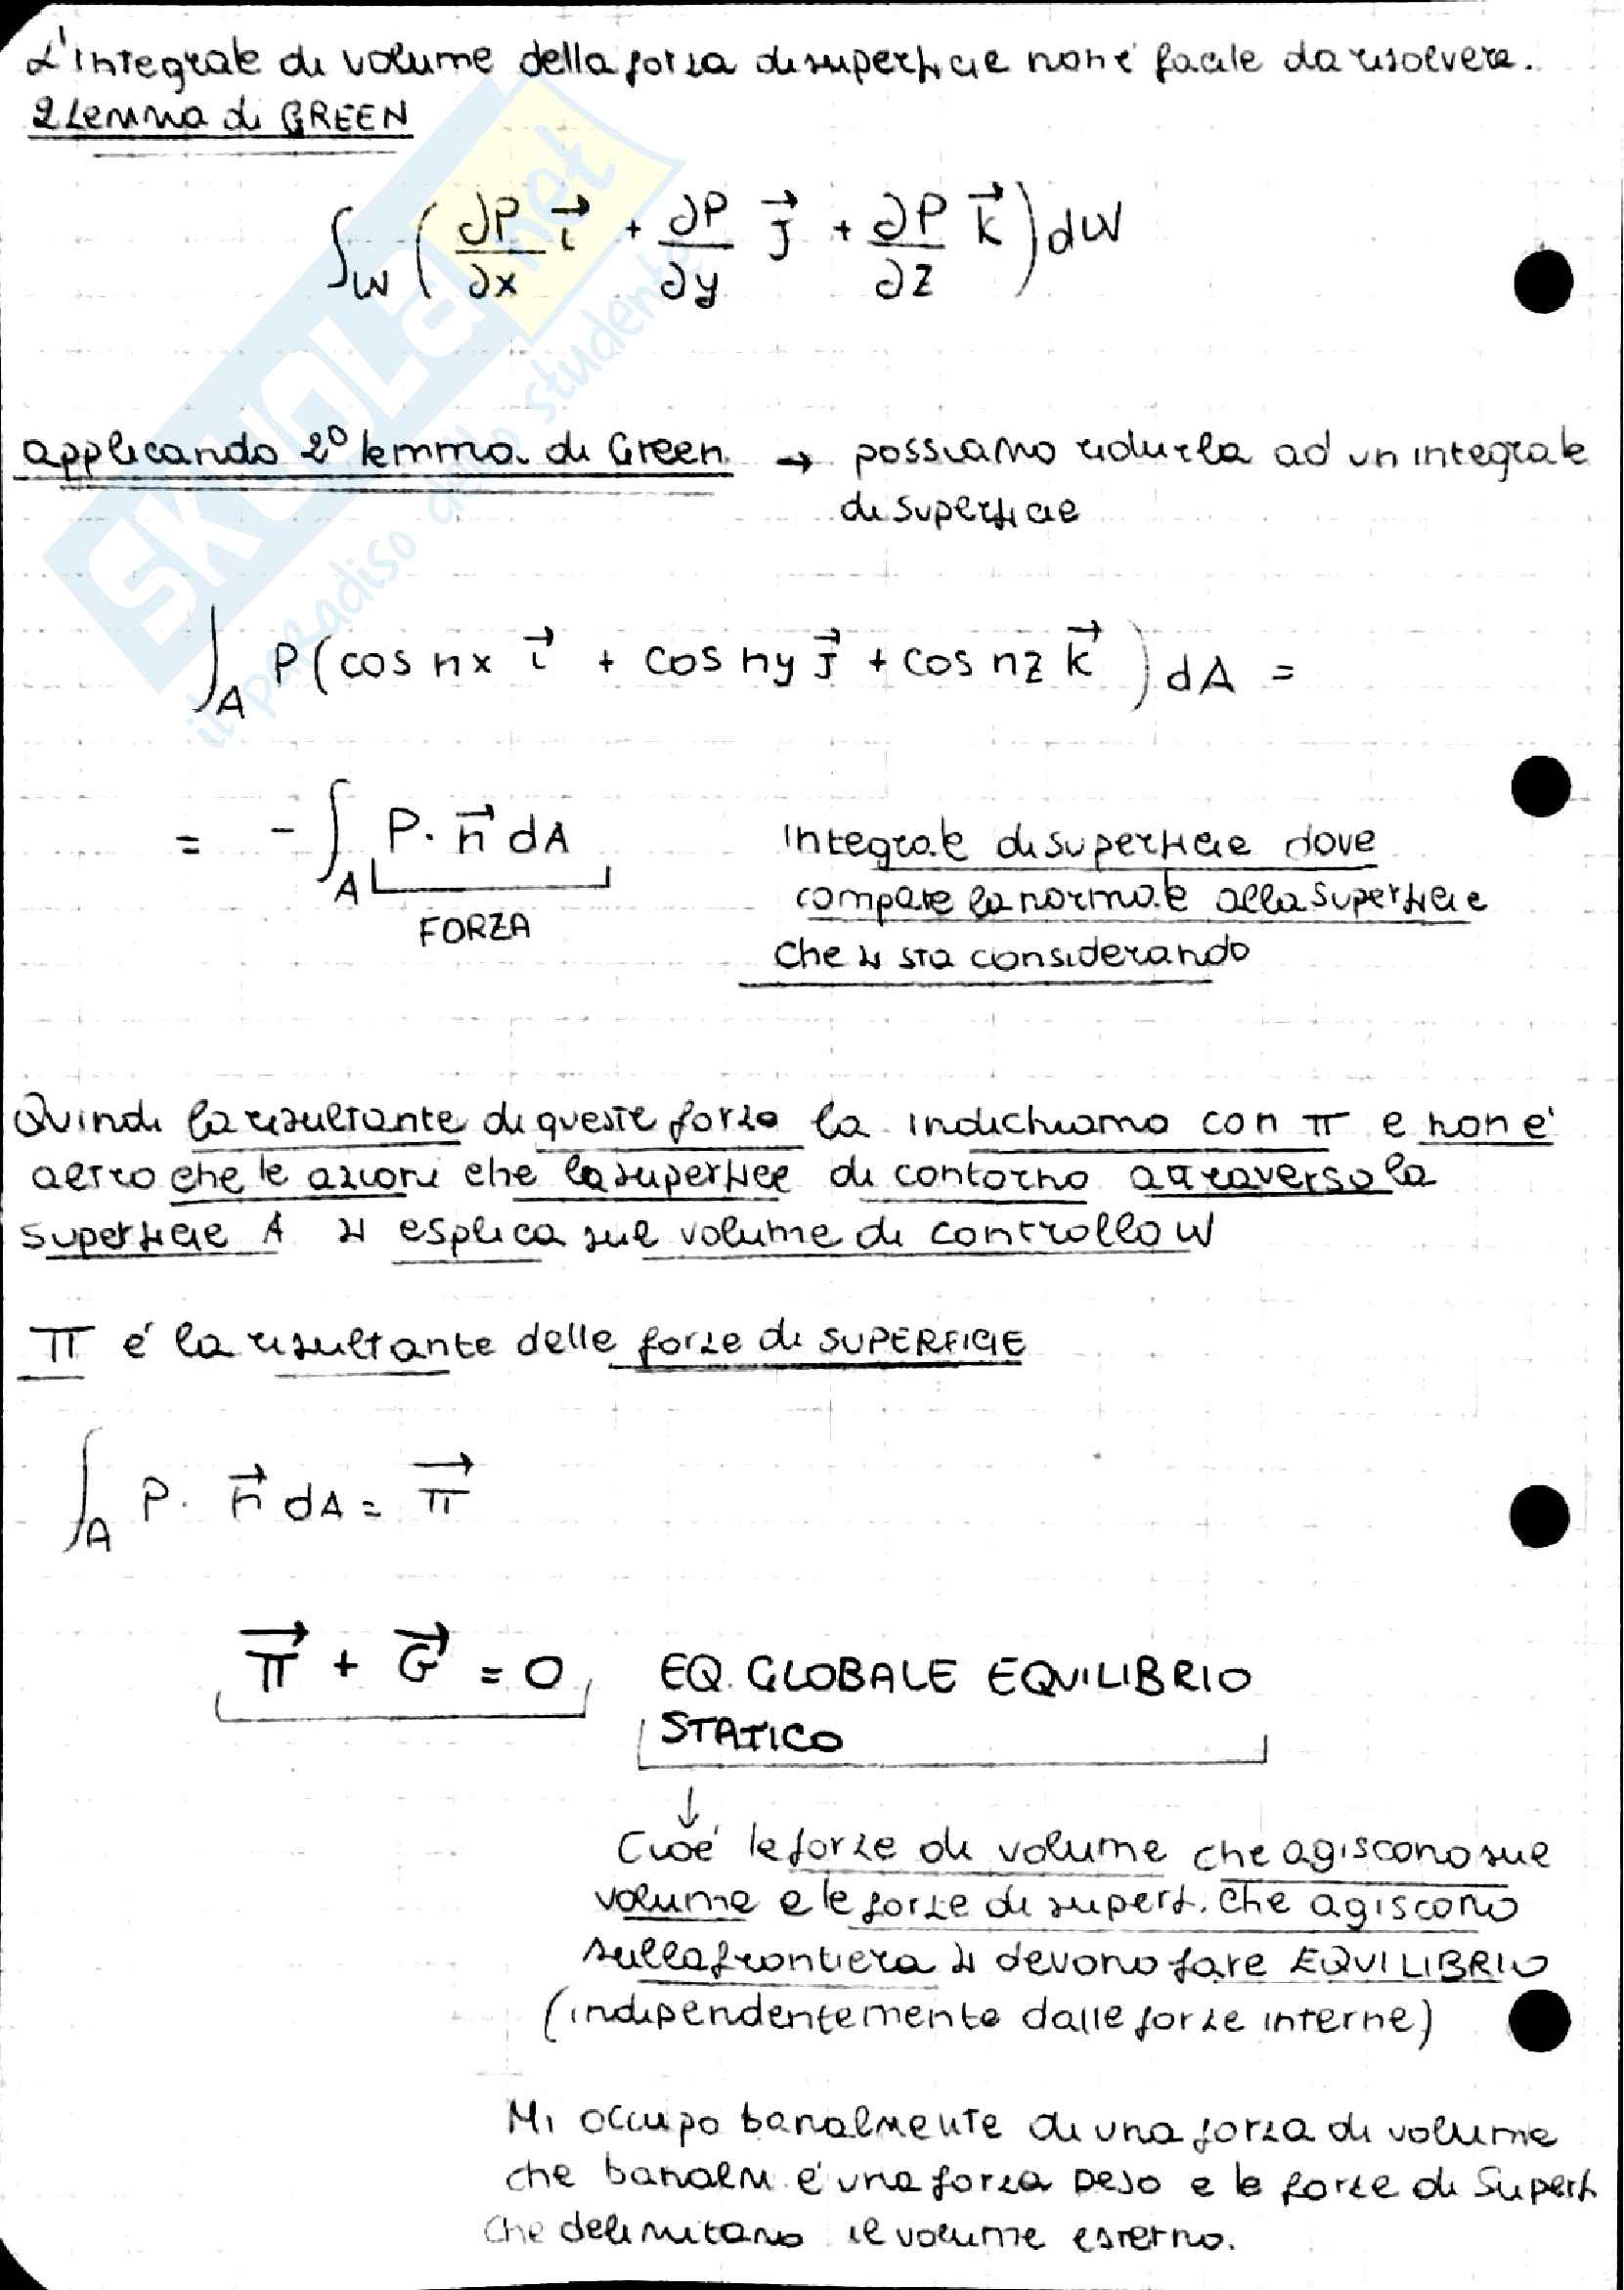 L'integrale di volume della forza di superficie non è facile da risolvere.
2 Lemma di GREEN
∫W (∂P/∂x i⃗ + ∂P/∂y j⃗ + ∂P/∂z k⃗) dW
applicando 2° lemma di Green → possiamo ridurla ad un integrale
di superficie
∫A P(cos nx i⃗ + cos ny j⃗ + cos nz k⃗) dA =
= - ∫A P · n⃗ dA
FORZA
integrale di superficie dove
compare la normale alla superficie
che si sta considerando
Quindi la risultante di queste forze la indichiamo con π e non è
altro che le azioni che la superficie di contorno attraverso la
superficie A si esplica sul volume di controllo W
π è la risultante delle forze di SUPERFICIE
∫A P · n⃗ dA = π⃗
π⃗ + G⃗ = 0 EQ. GLOBALE EQUILIBRIO
STATICO
↓
Cioè le forze di volume che agiscono sul
volume e le forze di superf. che agiscono
sulla frontiera si devono fare EQUILIBRIO
(indipendentemente dalle forze interne)
Mi occupo banalmente di una forza di volume
che banalm. è una forza peso e le forze di superf
che delimitano il volume esterno.
SKUOLA.net
il paradiso dello studente